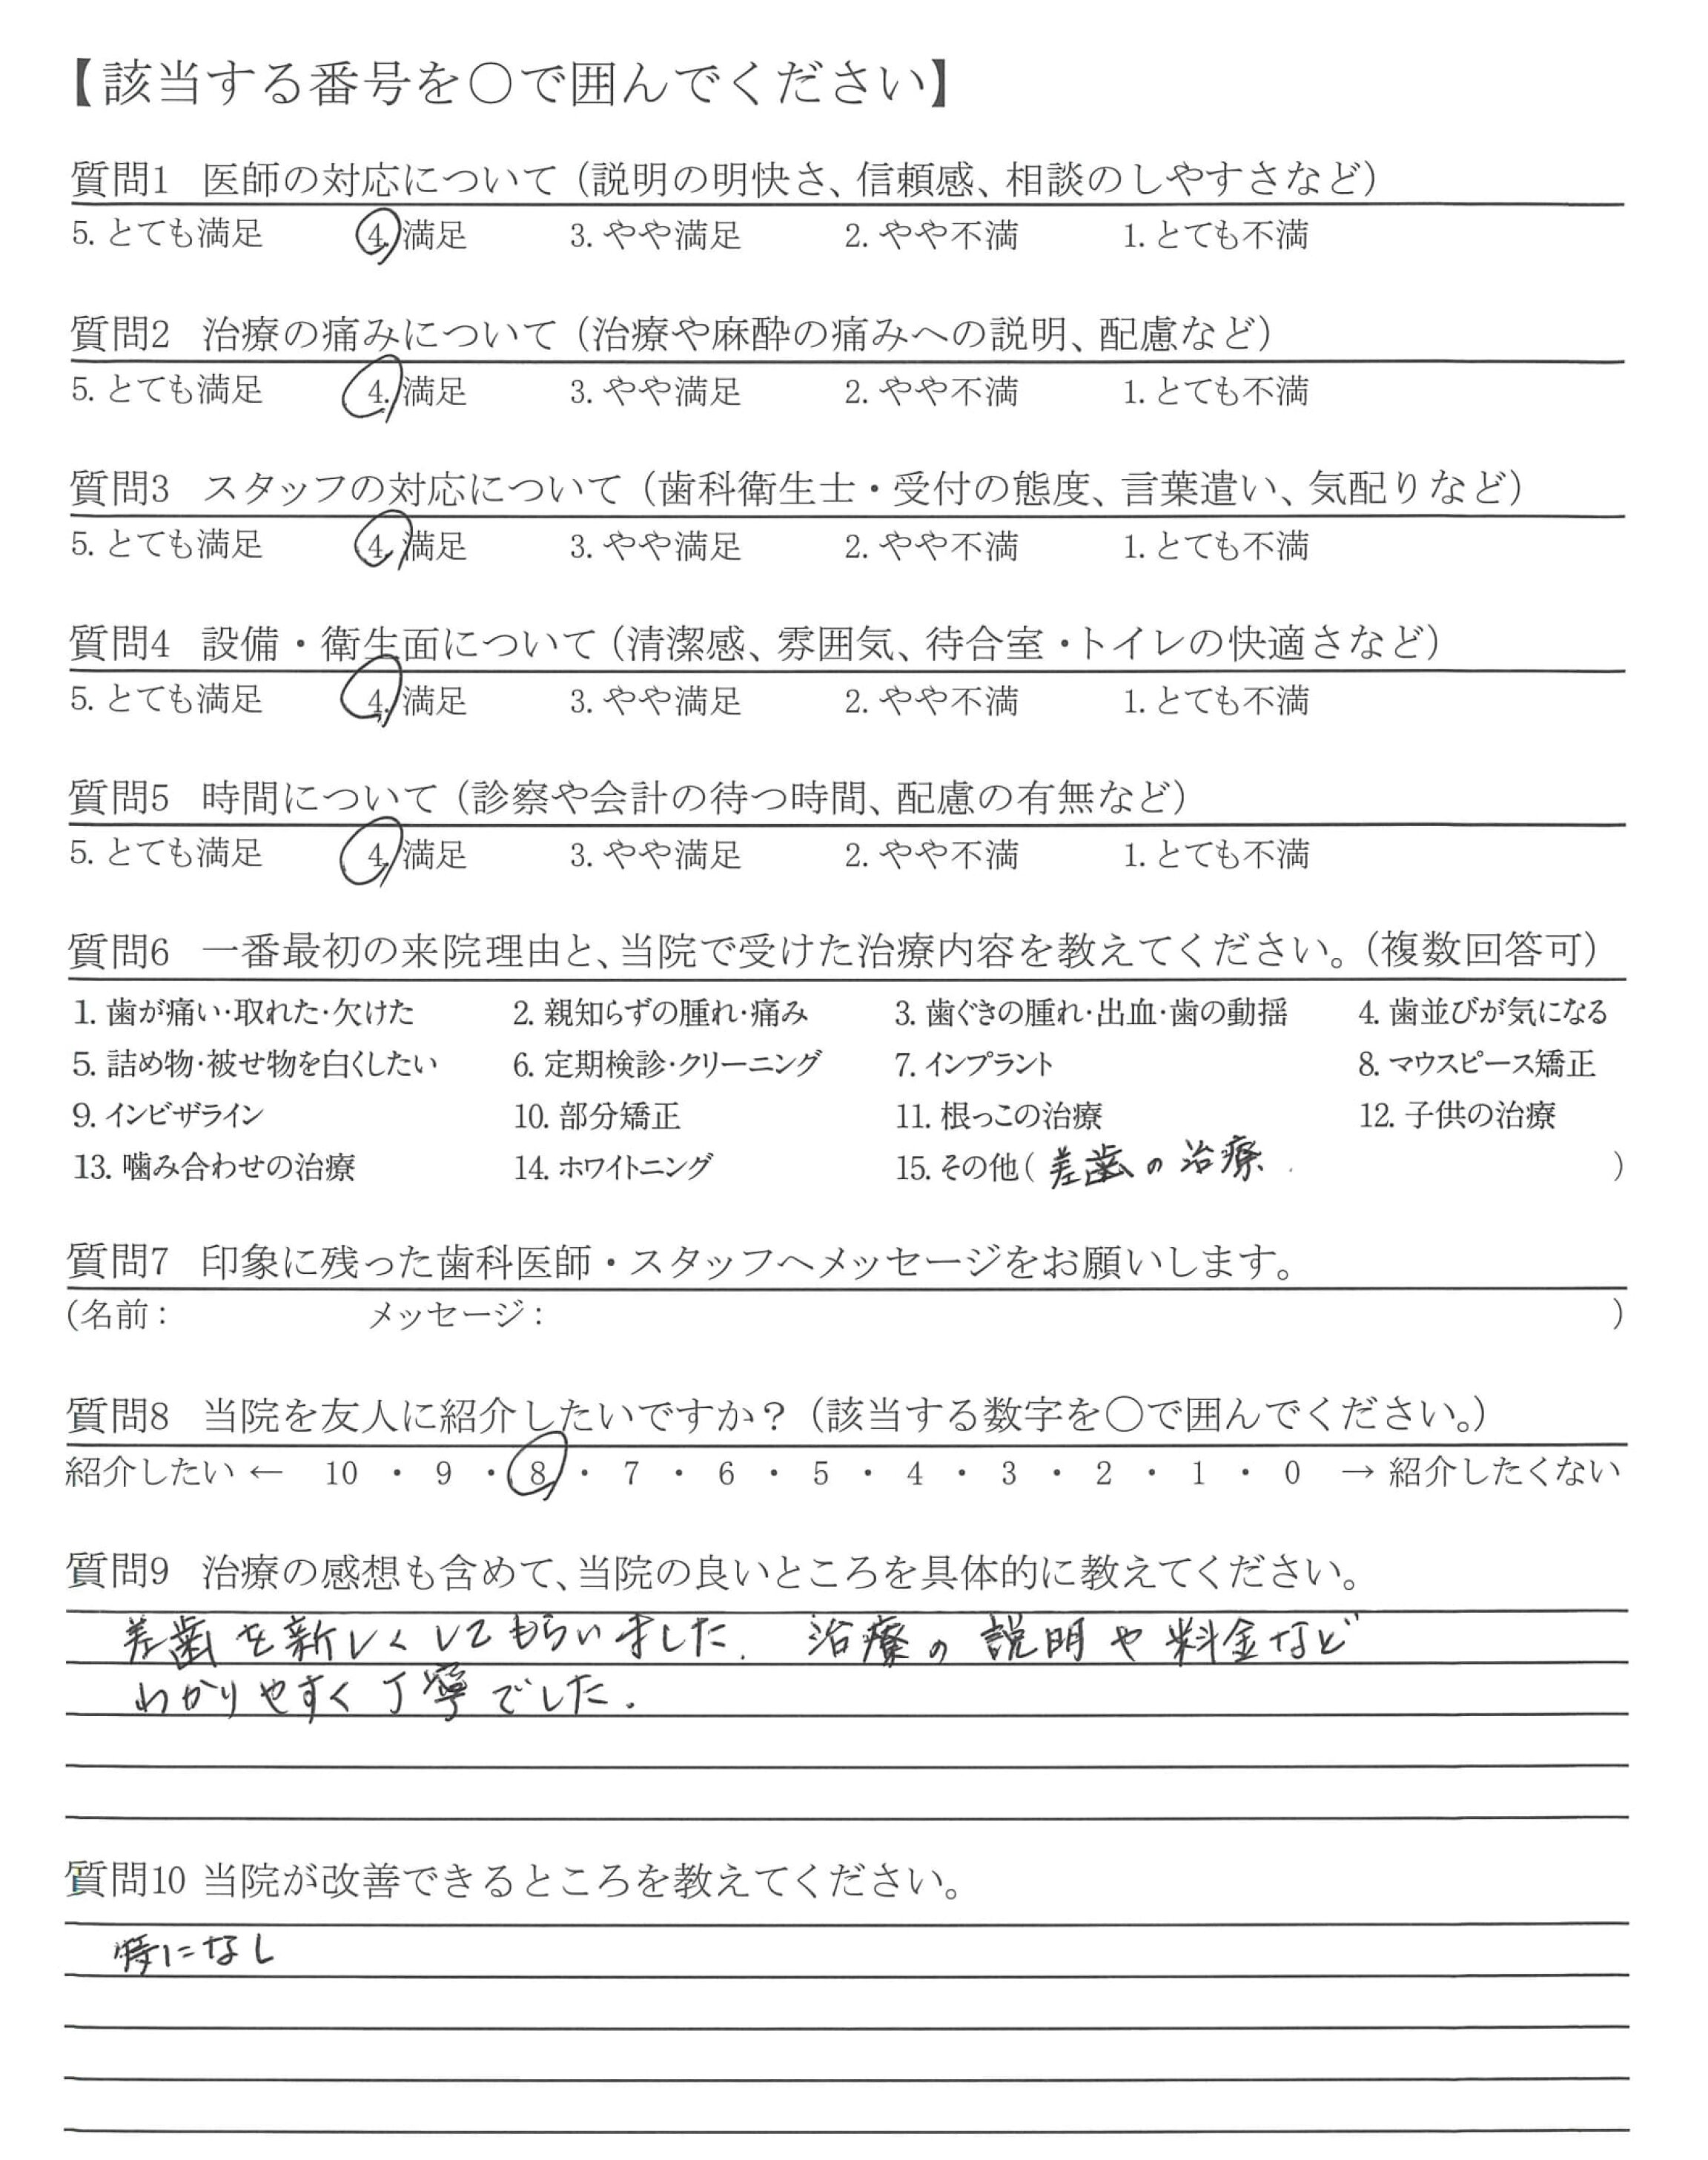 【該当する番号を〇で囲んでください】
質問1 医師の対応について（説明の明快さ、信頼感、相談のしやすさなど）
5. とても満足 4. 満足 3. やや満足 2. やや不満 1. とても不満
質問2 治療の痛みについて（治療や麻酔の痛みへの説明、配慮など）
5. とても満足 4. 満足 3. やや満足 2. やや不満 1. とても不満
質問3 スタッフの対応について（歯科衛生士・受付の態度、言葉遣い、気配りなど）
5. とても満足 4. 満足 3. やや満足 2. やや不満 1. とても不満
質問4 設備・衛生面について（清潔感、雰囲気、待合室・トイレの快適さなど）
5. とても満足 4. 満足 3. やや満足 2. やや不満 1. とても不満
質問5 時間について（診察や会計の待つ時間、配慮の有無など）
5. とても満足 4. 満足 3. やや満足 2. やや不満 1. とても不満
質問6 一番最初の来院理由と、当院で受けた治療内容を教えてください。（複数回答可）
1. 歯が痛い・取れた・欠けた 2. 親知らずの腫れ・痛み 3. 歯ぐきの腫れ・出血・歯の動揺 4. 歯並びが気になる
5. 詰め物・被せ物を白くしたい 6. 定期検診・クリーニング 7. インプラント 8. マウスピース矯正
9. インビザライン 10. 部分矯正 11. 根っこの治療 12. 子供の治療
13. 噛み合わせの治療 14. ホワイトニング 15. その他（ 差歯の治療. ）
質問7 印象に残った歯科医師・スタッフへメッセージをお願いします。
（名前： メッセージ： ）
質問8 当院を友人に紹介したいですか？（該当する数字を〇で囲んでください。）
紹介したい ← 10 ・ 9 ・ 8 ・ 7 ・ 6 ・ 5 ・ 4 ・ 3 ・ 2 ・ 1 ・ 0 → 紹介したくない
質問9 治療の感想も含めて、当院の良いところを具体的に教えてください。
差歯を新しくしてもらいました. 治療の説明や料金など
わかりやすく丁寧でした.
質問10 当院が改善できるところを教えてください。
特になし